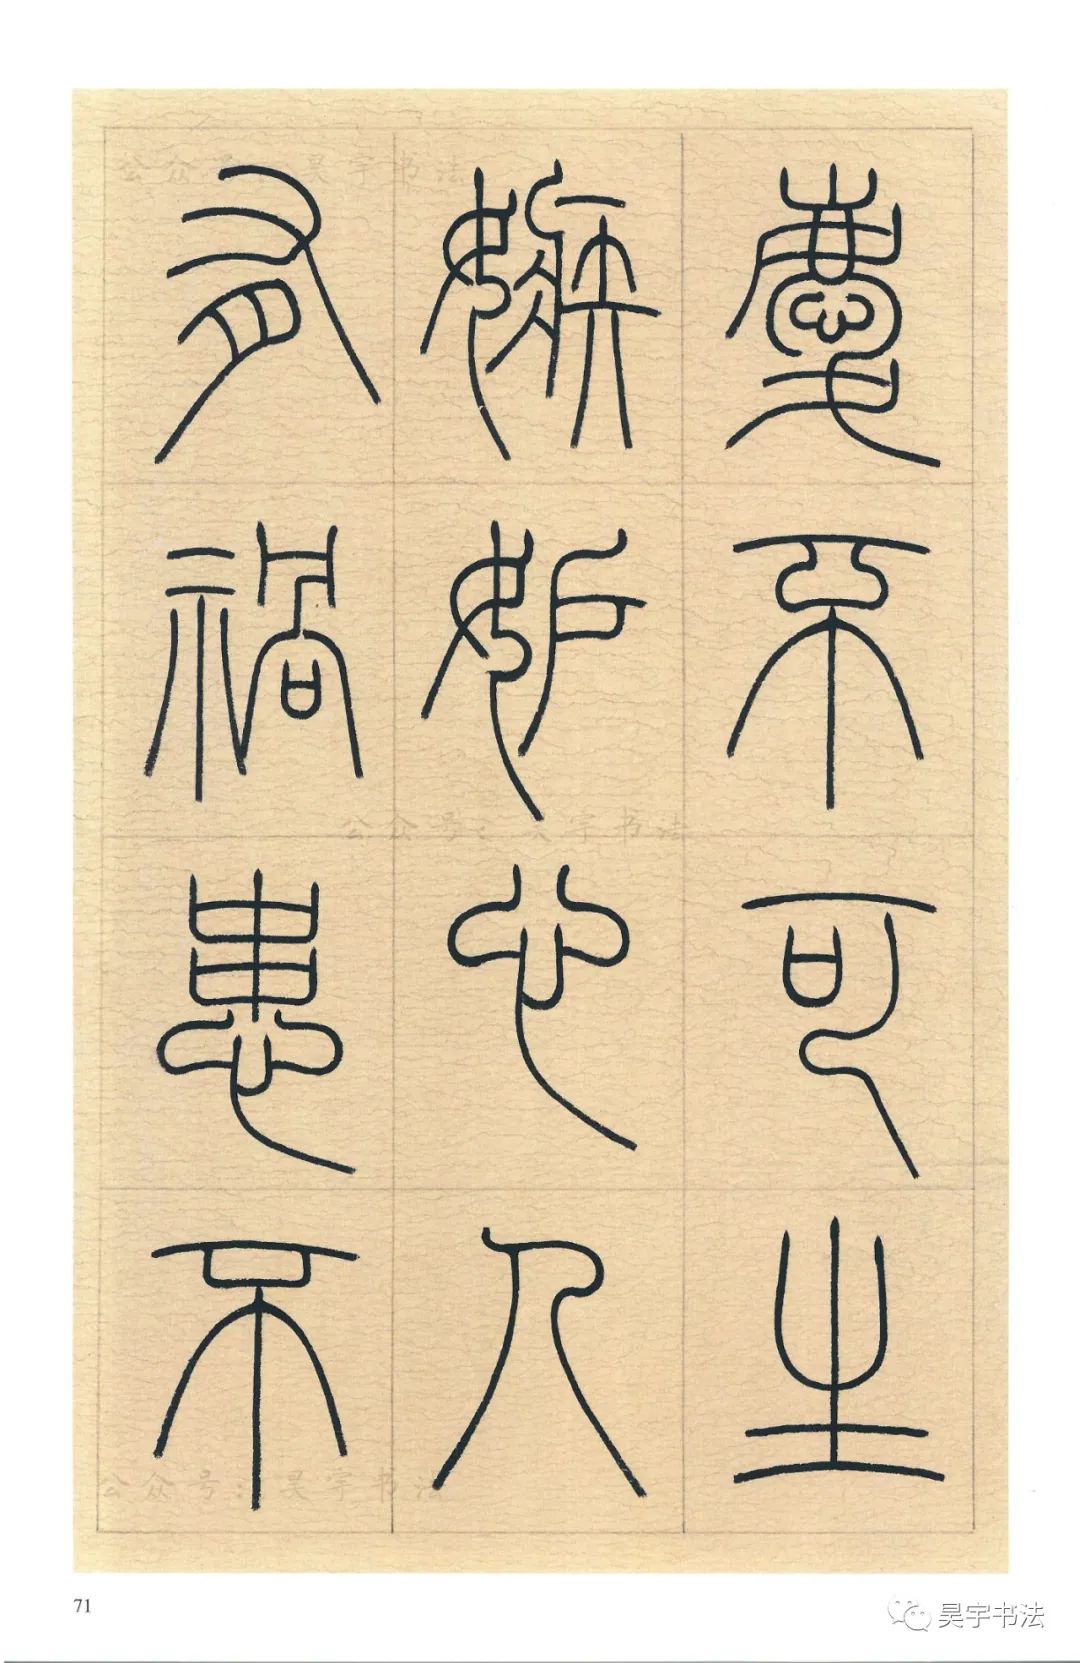 慶不可生
嫉妒心人
有禍患不
公众号：昊宇书法
公众号：昊宇书法
公众号：昊宇书法
71
昊宇书法